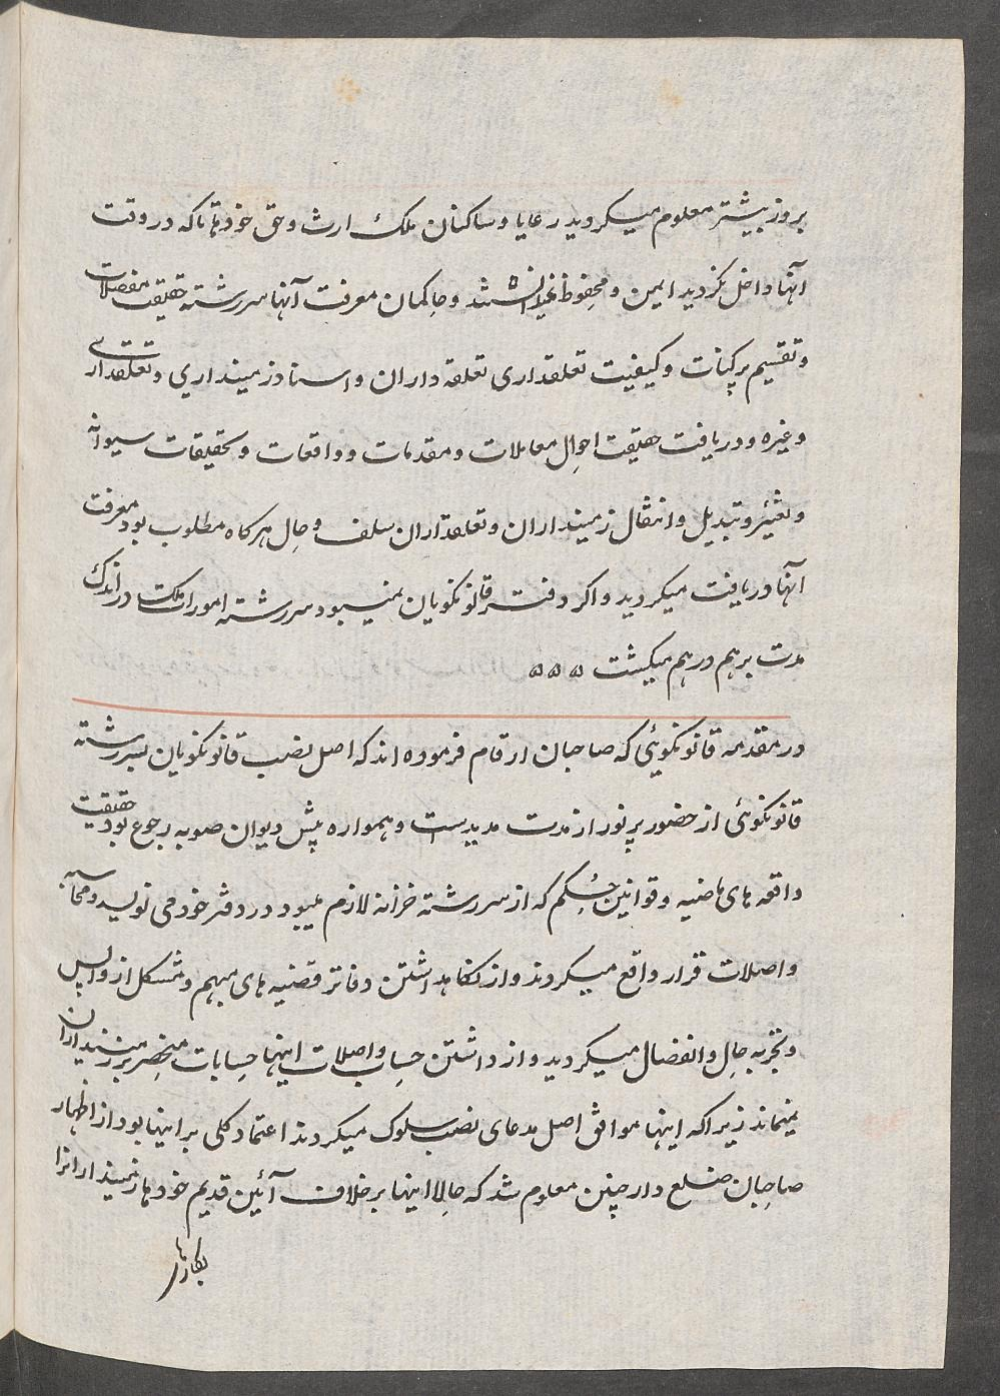 بروز بیشتر معلوم میکردید رعایا و ساکنان ملک ارث و حق خودها تا که در وقت
آنها داخل نکردید ایمن و محفوظ میدانستند و حاکمان معرفت آنها سررشته حقیقت مفصلات
و تقسیم پرکنات و کیفیت تعلقداری تعلقه داران و اسناد زمینداری و تعلقداری
و غیره و دریافت حقیقت احوال معاملات و مقدمات و واقعات و تحقیقات سیوانه
و تغیّر و تبدیل و انتقال زمینداران و تعلقداران سلف و حال هرکاه مطلوب بود معرفت
آنها دریافت میکردید و اکر دفتر قانونکویان نمیبود سررشته امورات ملک در اندک
مدت برهم درهم میکشت ۵ ۵ ۵
در مقدمه قانونکوئی که صاحبان ارقام فرموده اند که اصل نصب قانونکویان بسررشته
قانونکوئی از حضور پرنور از مدت مدیدست و همواره پیش دیوان صوبه رجوع بود حقیقت
واقعه های ماضیه و قوانین حکم که از سررشته خزانه لازم میبود در دفتر خود می نویسد و محاسبه
واصلات قرار واقع میکردند و از نکاهداشتن دفاتر قضیه های مبهم و مشکل از واپس
و تجربه حال و انفصال میکردید و از داشتن حساب واصلات اینها حسابات منحصر بر زمینداران
نمیماند زیرا که اینها موافق اصل مدعای نصب سلوک میکردند اعتماد کلی بر اینها بود از اظهار
صاحبان ضلع دار چنین معلوم شد که حالا اینها برخلاف آئین قدیم خودها زمیندارانرا
بکارها